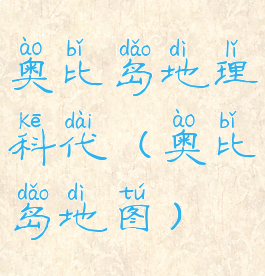 ào bǐ dǎo dì lǐ
奥比岛地理
kē dài ào bǐ
科代（奥比
dǎo dì tú
岛地图）